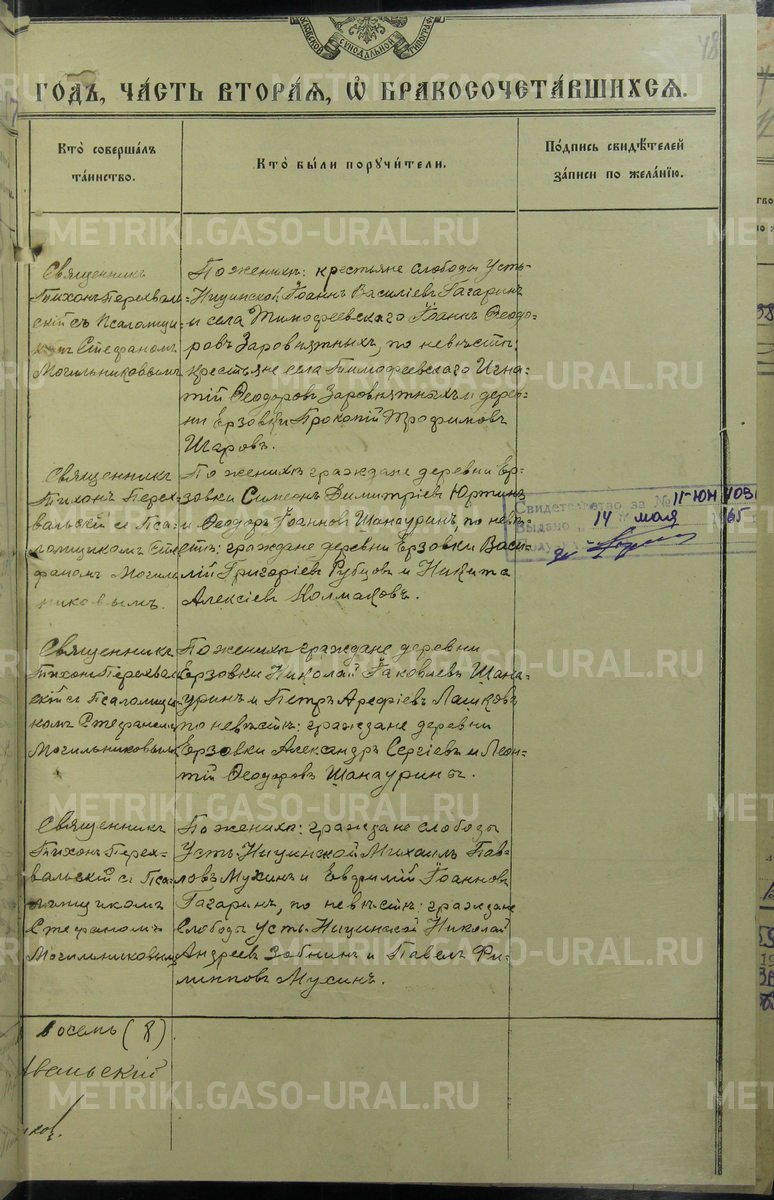 МОСКОВСКОЙ СѴНОДАЛЬНОЙ ТИПОГРАФІИ
48
ГО́ДЪ, ЧА́СТЬ ВТОРА́Я, Ѽ БРАКОСОЧЕТА́ВШИХСЯ.
Кто̀ соверша́лъ та́инство.
Кто̀ бы́ли поручи́тели.
По́дпись свидѣ́телей за́писи по жела́нїю.
Священникъ
Тихонъ Перехваль-
скій съ Псаломщи-
комъ Стефаномъ
Могильниковымъ
По женихѣ: крестьяне слободы Усть-
Ницинской Іоаннъ Василіевъ Гагаринъ
и села Тимофеевскаго Іоаннъ Ѳеодо-
ровъ Заровнятныхъ, по невѣстѣ:
крестьяне села Тимофеевскаго Игна-
тій Ѳеодоровъ Заровнятныхъ и дерев-
ни Ерзовки Прокопій Трофимовъ
Шаровъ.
Священникъ
Тихонъ Перех-
вальскій съ Пса-
ломщикомъ Сте-
фаномъ Могиль-
никовымъ.
По женихѣ: граждане деревни Ер-
зовки Симеонъ Димитріевъ Юртинъ
и Ѳеодоръ Іоанновъ Шанауринъ, по невѣ-
стѣ: граждане деревни Ерзовки Васи-
лій Григоріевъ Рубцовъ и Никита
Алексіевъ Колмаковъ.
Свидетельство за №
II-ЮН
Выдано
14 мая
1965
Священникъ
Тихонъ Перехваль-
скій съ Псаломщи-
комъ Стефаномъ
Могильниковымъ
По женихѣ: граждане деревни
Ерзовки Николай Іаковлевъ Шана-
уринъ и Петръ Арефіевъ Лашковъ
по невѣстѣ: граждане деревни
Ерзовки Александръ Сергіевъ и Леон-
тій Ѳеодоровъ Шанаурины.
Священникъ
Тихонъ Перех-
вальскій съ Пса-
ломщикомъ
Стефаномъ
Могильниковымъ
По женихѣ: граждане слободы
Усть-Ницинской Михаилъ Пав-
ловъ Мухинъ и Евфимій Іоанновъ
Гагаринъ, по невѣстѣ: граждане
слободы Усть-Ницинской Николай
Андреевъ Забнинъ и Павелъ Фи-
липповъ Мухинъ.
восемь (8)
вальскій
ков.
METRIKI.GASO-URAL.RU